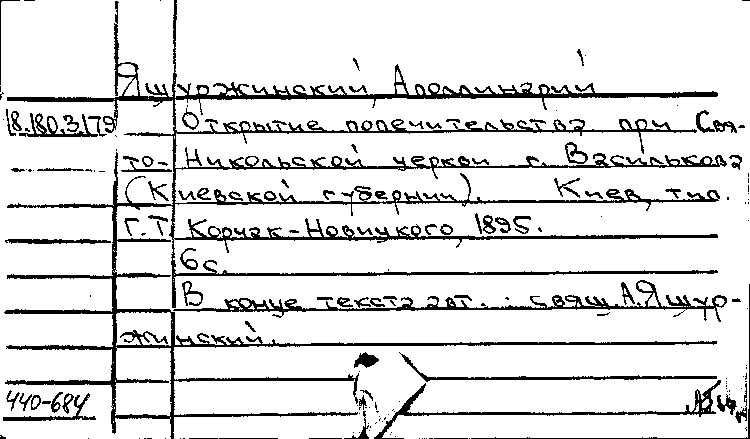 Ящуржинский, Аполлинарий
18.180.3.179 Открытие попечительства при Свя-
то-Никольской церкви г. Василькова
(Киевской губернии). Киев, тип.
Г.Т. Корчак-Новицкого, 1895.
6 с.
В конце текста авт.: свящ. А. Ящур-
жинский.
440-684